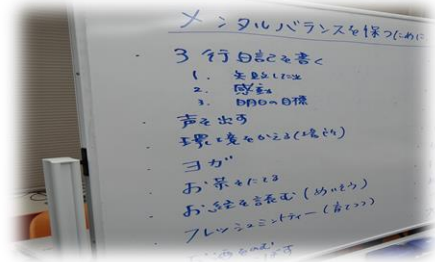 メンタルバランスを保つために
・ 3行日記を書く
1. 失敗した
2. 感動
3. 明日の目標
・ 声を出す
・ 環境をかえる
・ ヨガ
・ お茶をたてる
・ お経を読む (めいそう)
・ フレッシュミントティー